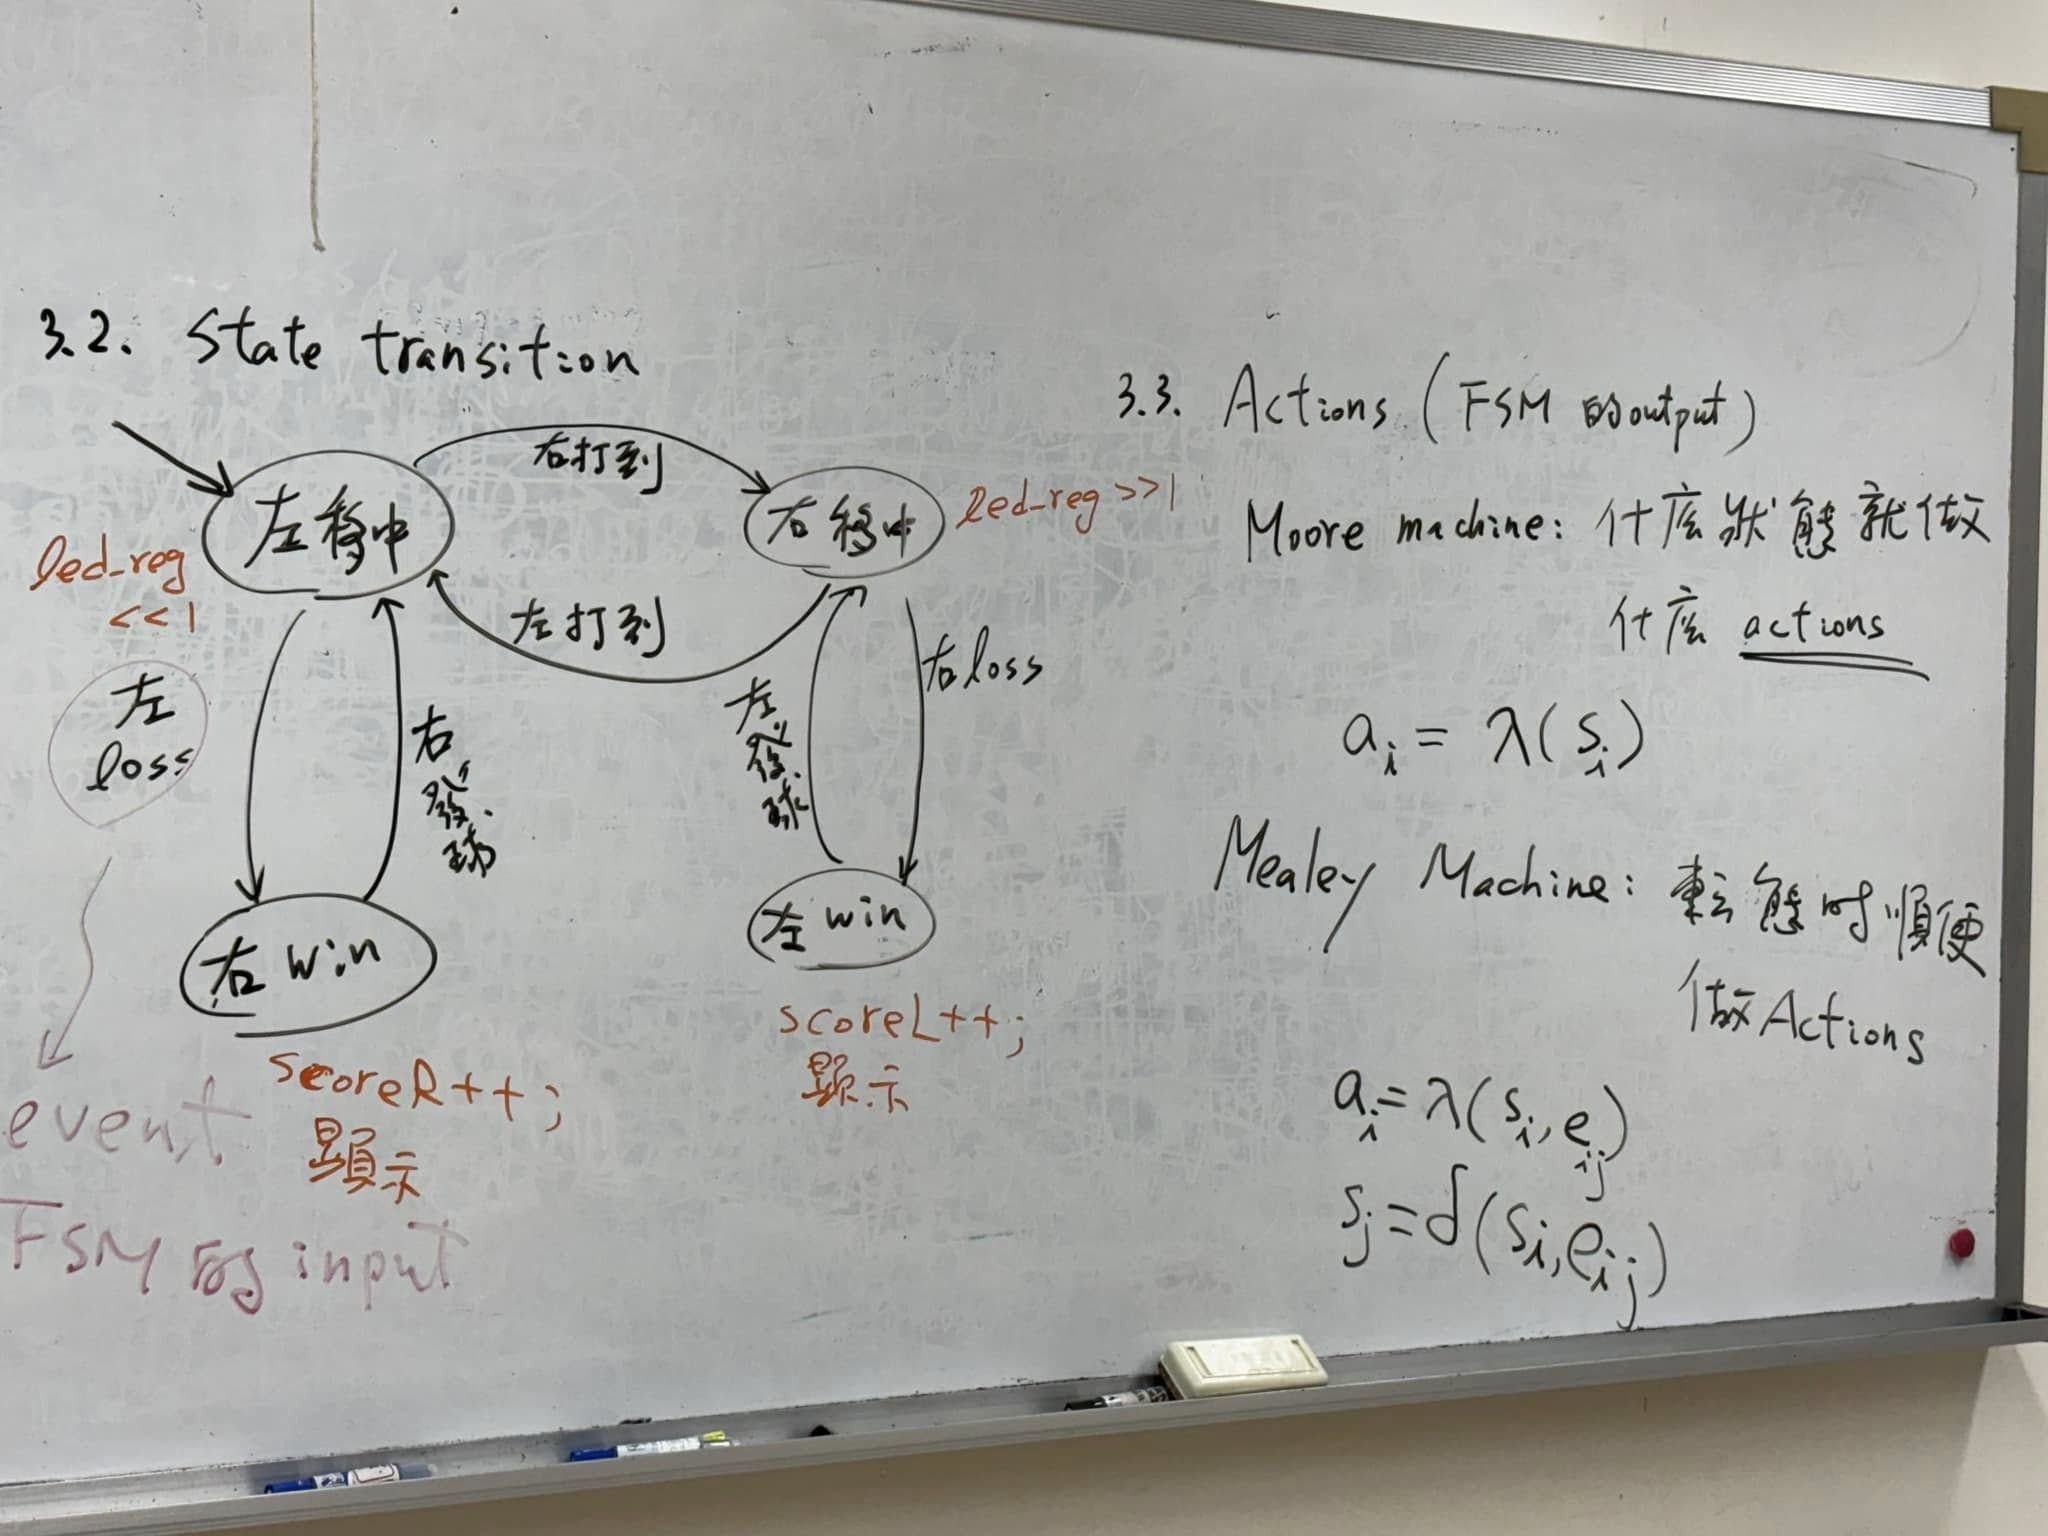 3.2. State transition
右打到
左移中
右移中
led_reg
<<1
led_reg >>1
左打到
左
loss
右
發
球
左
發
球
右loss
右 win
左 win
scoreR++;
顯示
scoreL++;
顯示
event
FSM的input
3.3. Actions (FSM 的output)
Moore machine: 什庅狀態就做
什庅 actions
a_i = λ(s_i)
Mealey Machine: 転態时順便
做Actions
a_i = λ(s_i, e_ij)
s_j = δ(s_i, e_ij)